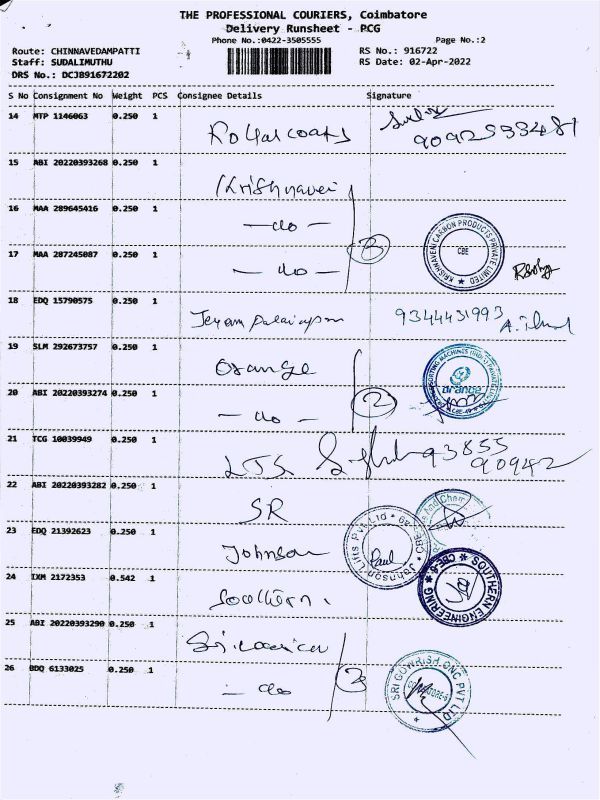 THE PROFESSIONAL COURIERS, Coimbatore
Delivery Runsheet - PCG
Phone No.:0422-3505555 Page No.:2
Route: CHINNAVEDAMPATTI RS No.: 916722
Staff: SUDALIMUTHU RS Date: 02-Apr-2022
DRS No.: DCJB91672202
S No Consignment No Weight PCS Consignee Details Signature
14 MTP 1146063 0.250 1
Royal coats 9092533481
15 ABI 20220393268 0.250 1
Krishnaveni
16 MAA 289645416 0.250 1
— do —
KRISHNAVEN CARBON PRODUCTS PRIVATE LIMITED ★ CBE
3
17 MAA 287245087 0.250 1
— do —
18 EDQ 15790575 0.250 1
9344431993
19 SLM 292673757 0.250 1
Orange
SORTING MACHINES (INDIA) PRIVATE
orange
20 ABI 20220393274 0.250 1
— do — 2
21 TCG 10039949 0.250 1
LJS 93855
90942
22 ABI 20220393282 0.250 1
SR
And Chem
23 EDQ 21392623 0.250 1
Johnson
Johnson Lifts Pvt Ltd ★ CBE-49
Paul
24 IXM 2172353 0.542 1
Southern
★ SOUTHERN ENGINEERING ★ CBE-6
25 ABI 20220393290 0.250 1
26 BDQ 6133025 0.250 1
— do 2
SRI GOWRISH CNC PVT LTD ★